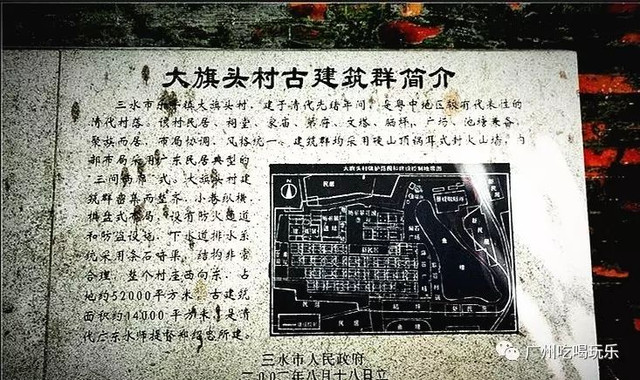 大旗头村古建筑群简介
三水市乐平镇大旗头村，建于清代光绪年间，是粤中地区较有代表性的
清代村落。该村民居、祠堂、家庙、第府、文塔、晒坪、广场、池塘兼备，
聚族而居，布局协调，风格统一。建筑群均采用硬山顶镬耳式封火山墙，内
部布局采用广东民居典型的
三间两廊式。大旗头村建
筑群密集而整齐，小巷纵横，
棋盘式布局，设有防火通道
和防盗设施，下水道排水系
统采用条石暗渠，结构非常
合理，整个村座西向东，占
地约52000平方米，古建筑
面积约14000平方米，是清
代广东水师提督郑绍忠所建。
大旗头村保护范围和建设控制地带图
民居
鱼塘
三水市人民政府
二〇〇二年八月十八日立
广州吃喝玩乐